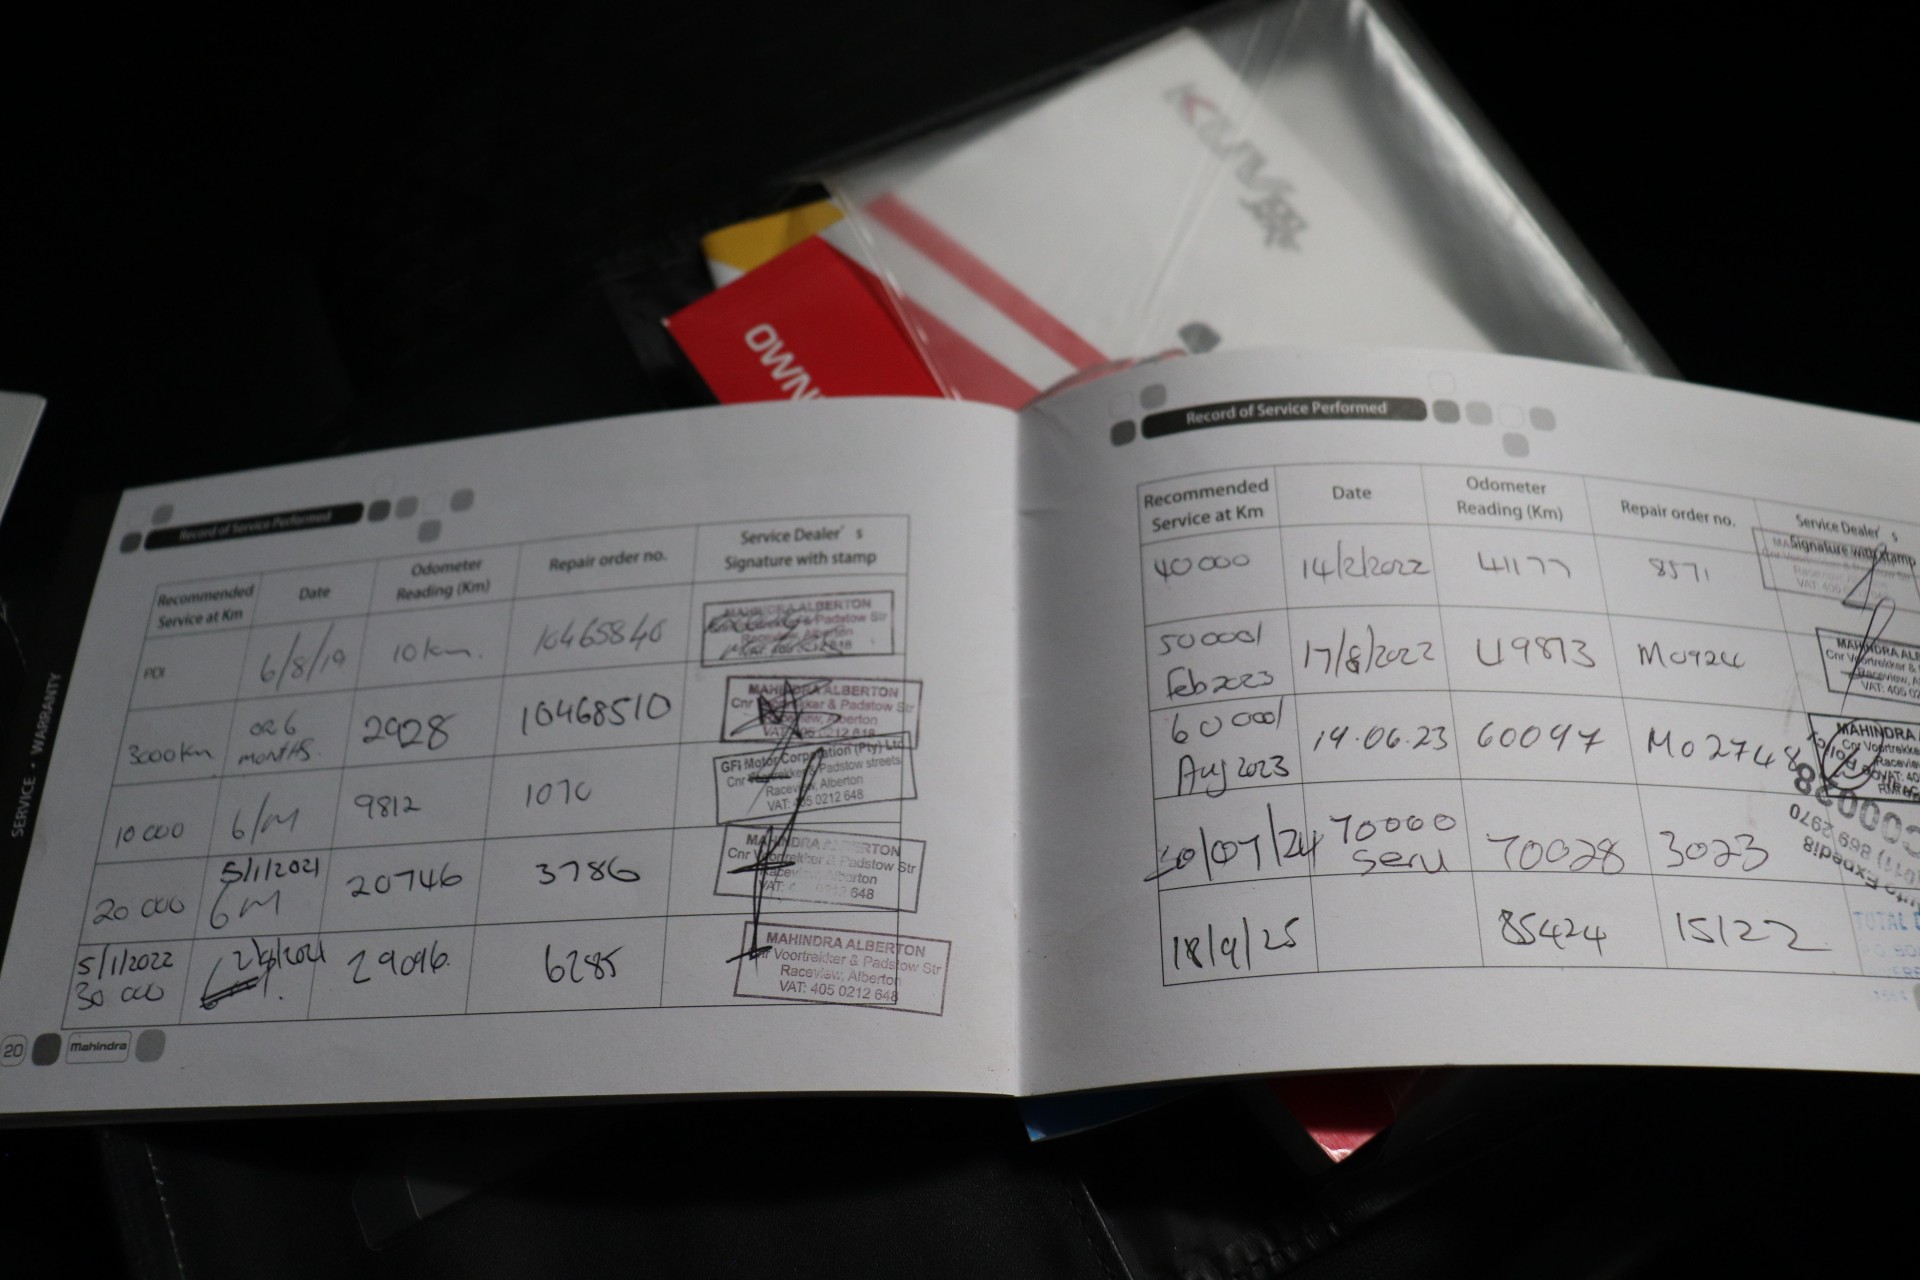 OWN
SERVICE • WARRANTY
Record of Service Performed
Recommended Service at Km
Date
Odometer Reading (Km)
Repair order no.
Service Dealer's Signature with stamp
PDI 6/8/19 10 km. 10465840
MAHINDRA ALBERTON
& Padstow Str
Raceview, Alberton
3000km OR 6 MONTHS. 2928 10468510
MAHINDRA ALBERTON
Cnr Voortrekker & Padstow Str
Raceview, Alberton
VAT: 405 0212 648
10 000 6/M 9812
GFI Motor Corporation (Pty) Ltd
Cnr Voortrekker & Padstow streets
Raceview, Alberton
VAT: 405 0212 648
20 000 5/1/2021 6M 20746 3786
MAHINDRA ALBERTON
Cnr Voortrekker & Padstow Str
Raceview, Alberton
VAT: 405 0212 648
5/1/2022 30 000 29096. 6285
MAHINDRA ALBERTON
Cnr Voortrekker & Padstow Str
Raceview, Alberton
VAT: 405 0212 648
20
Mahindra
Record of Service Performed
Recommended Service at Km
Date
Odometer Reading (Km)
Repair order no.
Service Dealer's Signature with stamp
40000 14/2/2022 41177 8571
50000/ Feb 2023 17/8/2022 49873
MAHINDRA ALB
60000/ Aug 2023 19.06.23 60097 M02748
MAHINDRA
Cnr Voortrekke
30/07/24 70000 Serv 70028 3023
18/9/25 85424 15122
TOTAL